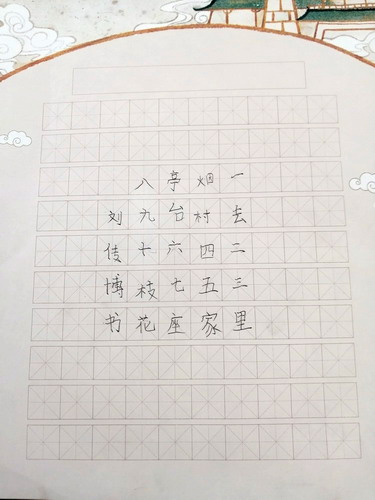 一去二三里
烟村四五家
亭台六七座
八九十枝花
刘博书